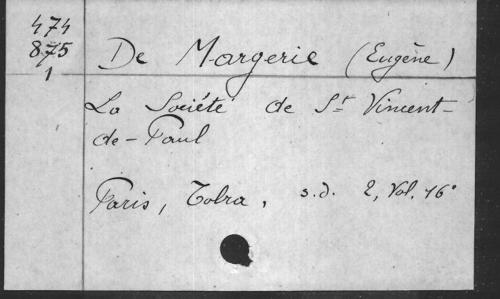 474
875
1
De Margerie (Eugène)
La Société de St Vincent-
de-Paul
Paris, Tolra, s.d. 2, Vol. 16°